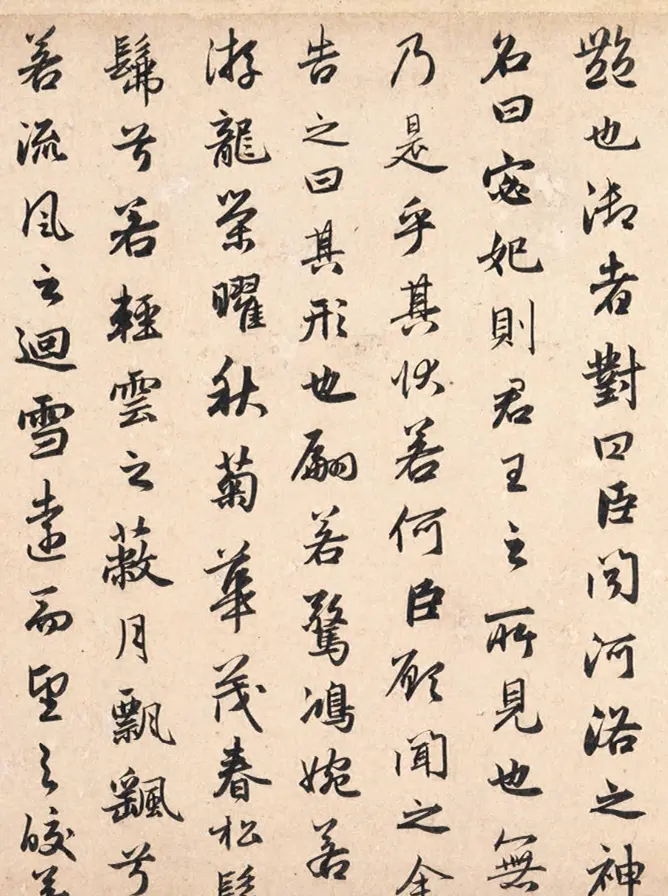 艶也御者對曰臣聞河洛之神
名曰宓妃則君王之所見也無
乃是乎其状若何臣願聞之余
告之曰其形也翩若驚鴻婉若
游龍榮曜秋菊華茂春松髣
髴兮若輕雲之蔽月飄颻兮
若流風之迴雪遠而望之皎若